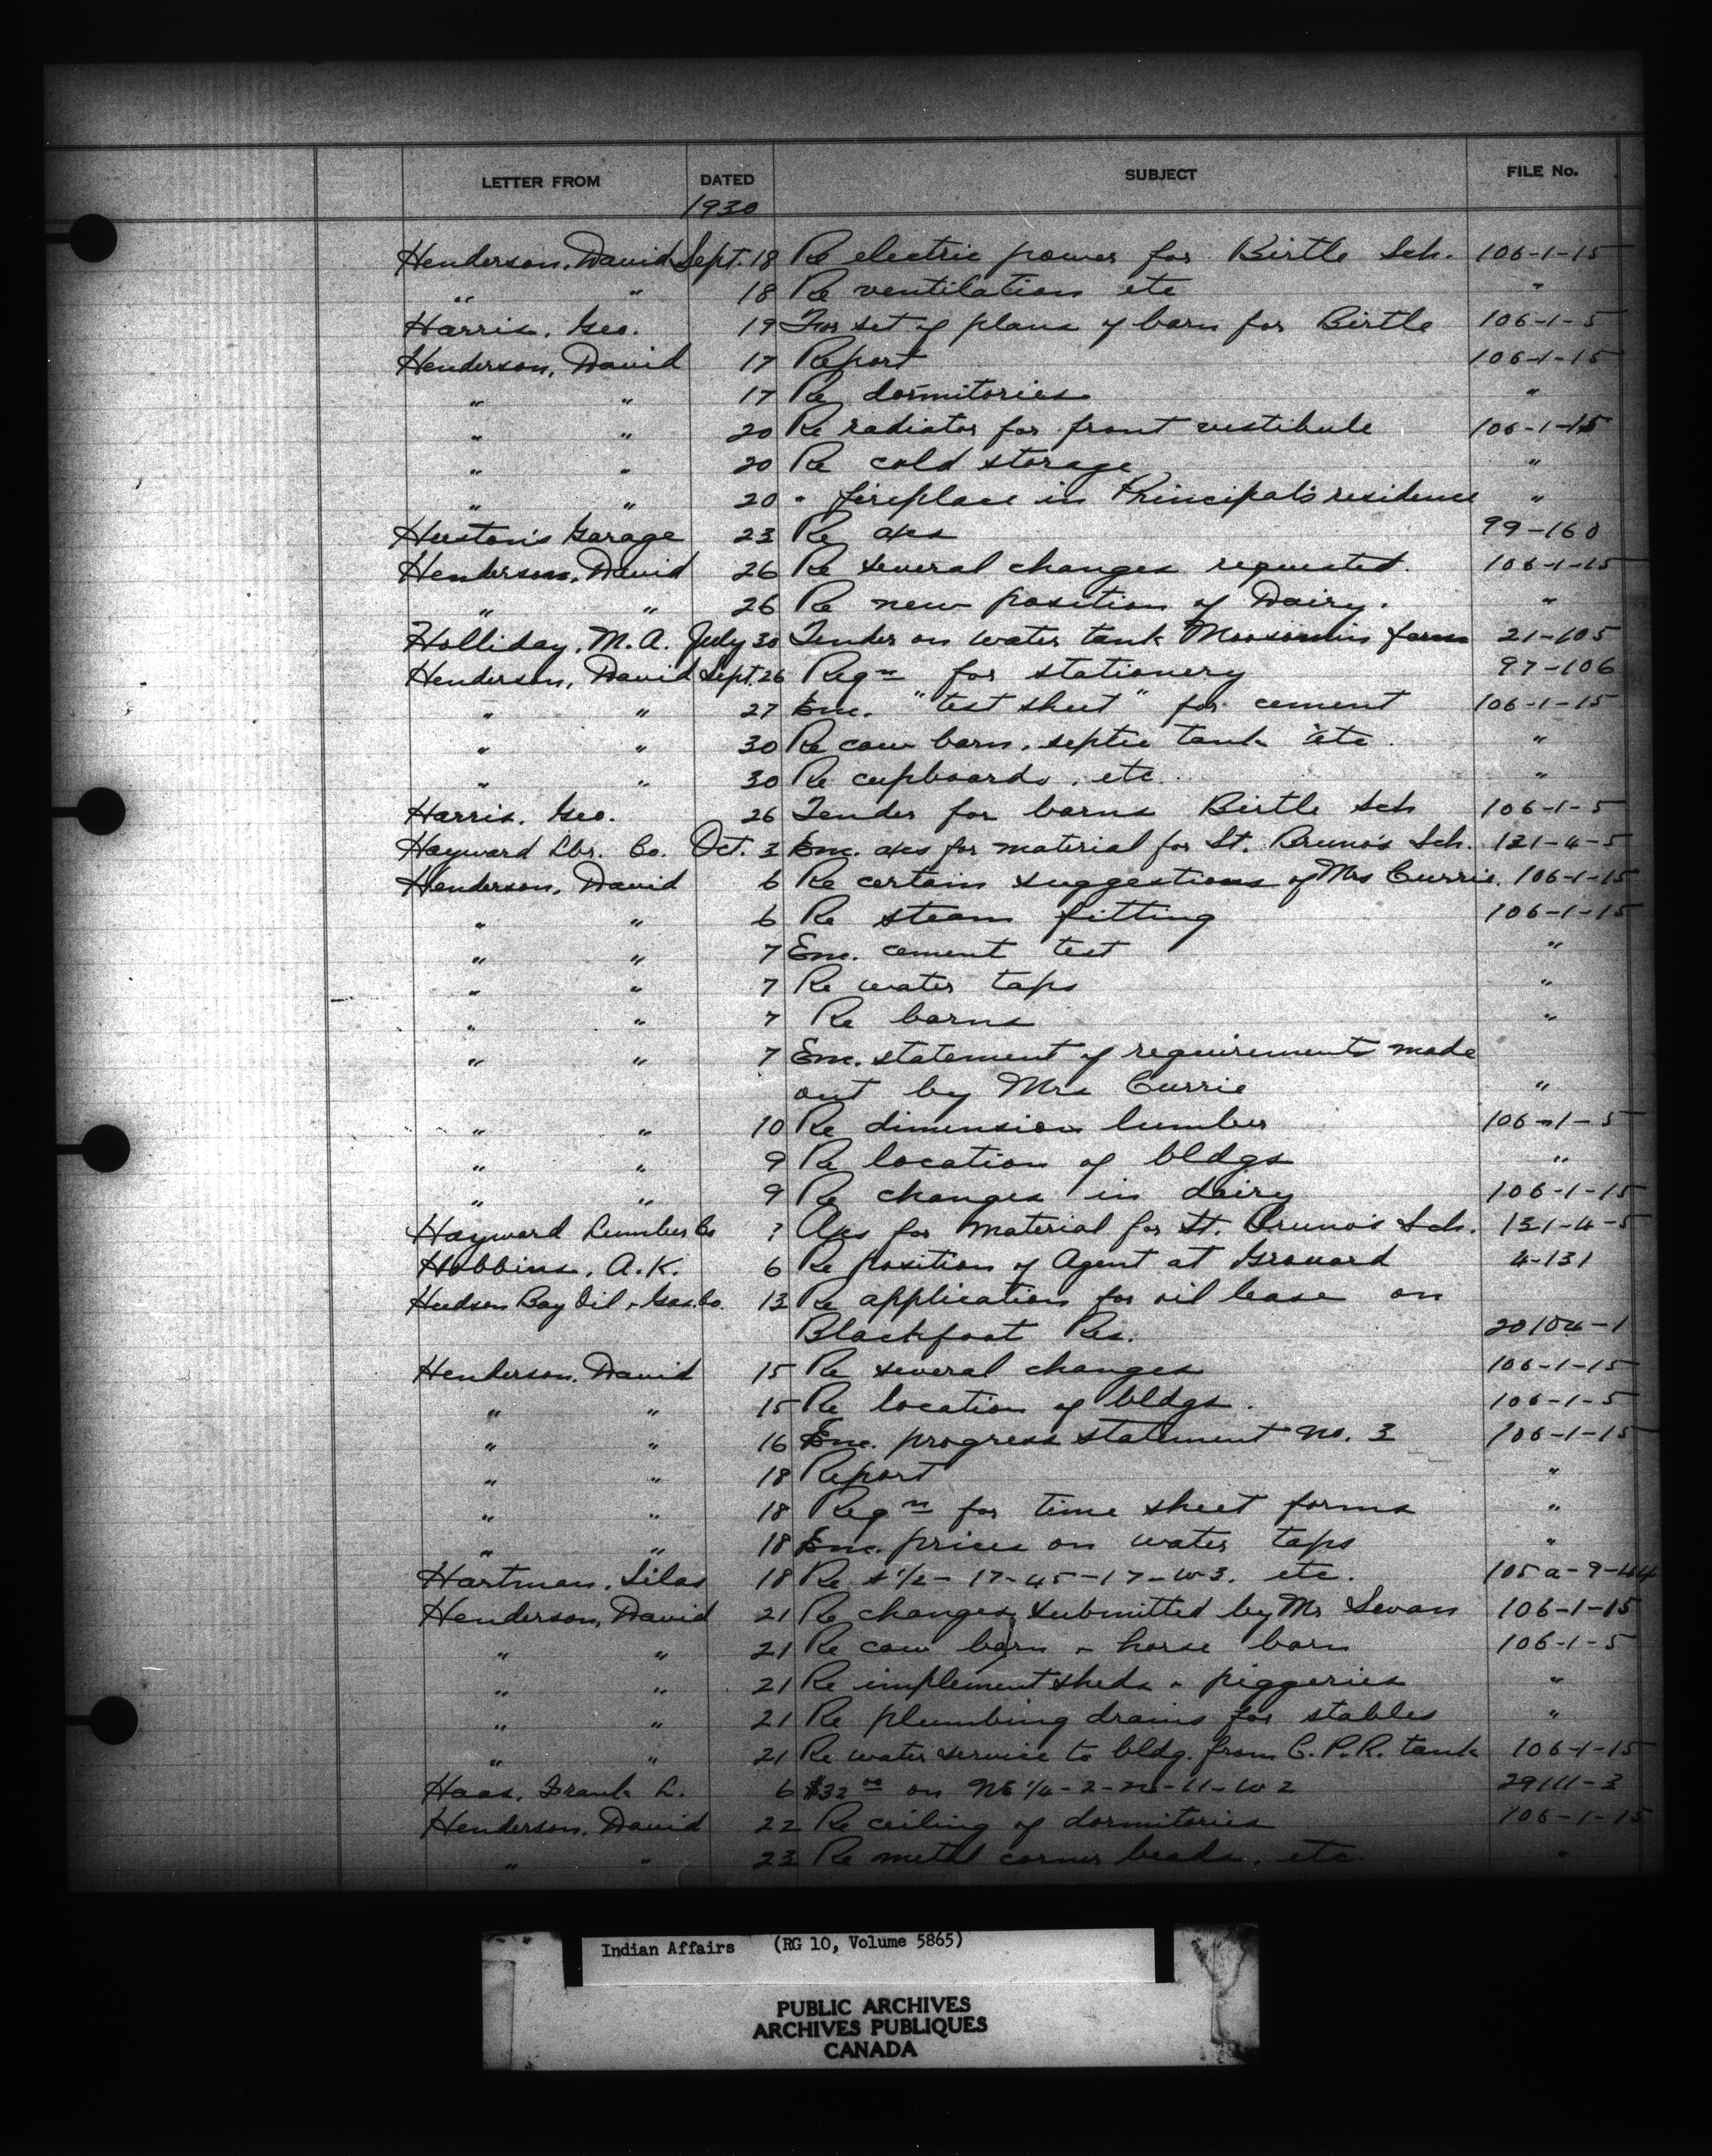 LETTER FROM DATED SUBJECT FILE No.
1930
Henderson, David Sept. 18 Re electric power for Birtle Sch. 106-1-15
" " 18 Re ventilation etc "
Harris, Geo. 19 For set of plans of barn for Birtle 106-1-5
Henderson, David 17 Report 106-1-15
" " 17 Re dormitories "
" " 20 Re radiator for front vestibule 106-1-15
" " 20 Re cold storage "
" " 20 " fireplace in Principal's residence "
Huston's Garage 23 Re a/cs 99-160
Henderson, David 26 Re several changes requested. 106-1-15
" " 26 Re new position of Dairy. "
Holliday, M.A. July 30 Tender on water tank Moosomin farm 21-105
Henderson, David Sept. 26 Reqn for stationery 97-106
" " 27 Enc. "test sheet" for cement 106-1-15
" " 30 Re cow barn, septic tank etc. "
" " 30 Re cupboards, etc. "
Harris, Geo. 26 Tender for barns Birtle Sch 106-1-5
Hayward Lbr. Co. Oct. 3 Enc. a/cs for material for St. Bruno's Sch. 121-4-5
Henderson, David 6 Re certain suggestions of Mrs Currie. 106-1-15
" " 6 Re steam fitting 106-1-15
" " 7 Enc. cement test "
" " 7 Re water taps "
" " 7 Re barns "
" " 7 Enc. statement of requirements made
out by Mrs Currie "
" " 10 Re dimension lumber 106-1-5
" " 9 Re location of bldgs "
" " 9 Re changes in dairy 106-1-15
Hayward Lumber Co ? A/cs for material for St. Bruno's Sch. 131-4-5
Hobbins, A.K. 6 Re position of Agent at Grouard 4-131
Hudson Bay Oil & Gas Co. 13 Re application for oil lease on
Blackfoot Res. 20104-1
Henderson, David 15 Re several changes 106-1-15
" " 15 Re location of bldgs. 106-1-5
" " 16 Enc. progress statement no. 3 106-1-15
" " 18 Report "
" " 18 Reqn for time sheet forms "
" " 18 Enc. prices on water taps "
Hartman, Silas 18 Re s 1/2-17-45-17-w3. etc. 105a-9-44
Henderson, David 21 Re changes submitted by Mr Swan 106-1-15
" " 21 Re cow barn & horse barn 106-1-5
" " 21 Re implement sheds & piggeries "
" " 21 Re plumbing drains for stables "
" " 21 Re water service to bldg. from C.P.R. tank 106-1-15
Haas, Frank L. 6 $32 00 on NE 1/4-2- -11-W2 29111-3
Henderson, David 22 Re ceiling of dormitories 106-1-15
" " 23 Re metal corner beads, etc. "
Indian Affairs (RG 10, Volume 5865)
PUBLIC ARCHIVES
ARCHIVES PUBLIQUES
CANADA